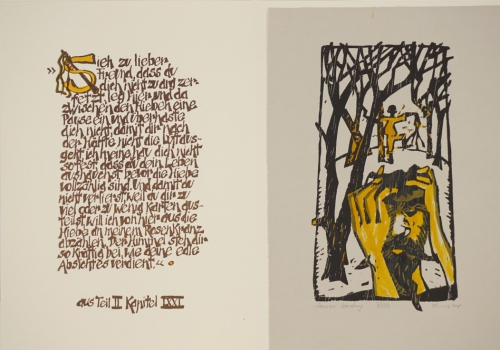 »Sieh zu lieber
Freund, dass du
dich nicht zu arg zer-
fetzt, leg hier und da
zwischen den Hieben eine
Pause ein und überhaste
dich nicht, damit dir nach
der Hälfte nicht die Luft aus-
geht, ich meine, hau dich nicht
so fest, dass du dein Leben
aushauchst bevor die Hiebe
vollzählig sind. Und damit du
nicht verlierst, weil du dir zu
viel oder zu wenig Karten aus-
teilst will ich von hier aus die
Hiebe an meinem Rosenkranz
abzählen. Der Himmel steh dir
so kräftig bei, wie deine edle
Absicht es verdient.«
aus Teil II Kapitel LXXI